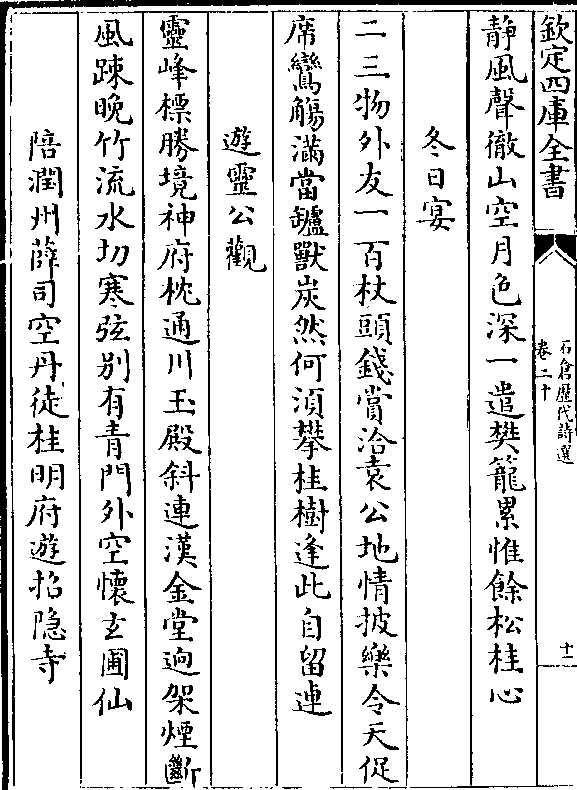 欽定四庫全書
石倉歷代詩選
卷二十
十一
靜風聲徹山空月色深一遣樊籠累惟餘松桂心
冬日宴
二三物外友一百杖頭錢賞洽袁公地情披樂令天促
席鸞觴滿當罏獸炭然何須攀桂樹逢此自留連
遊靈公觀
靈峰標勝境神府枕通川玉殿斜連漢金堂迥架煙斷
風踈晚竹流水切寒弦別有青門外空懷玄圃仙
陪潤州薛司空丹徒桂明府遊招隐寺